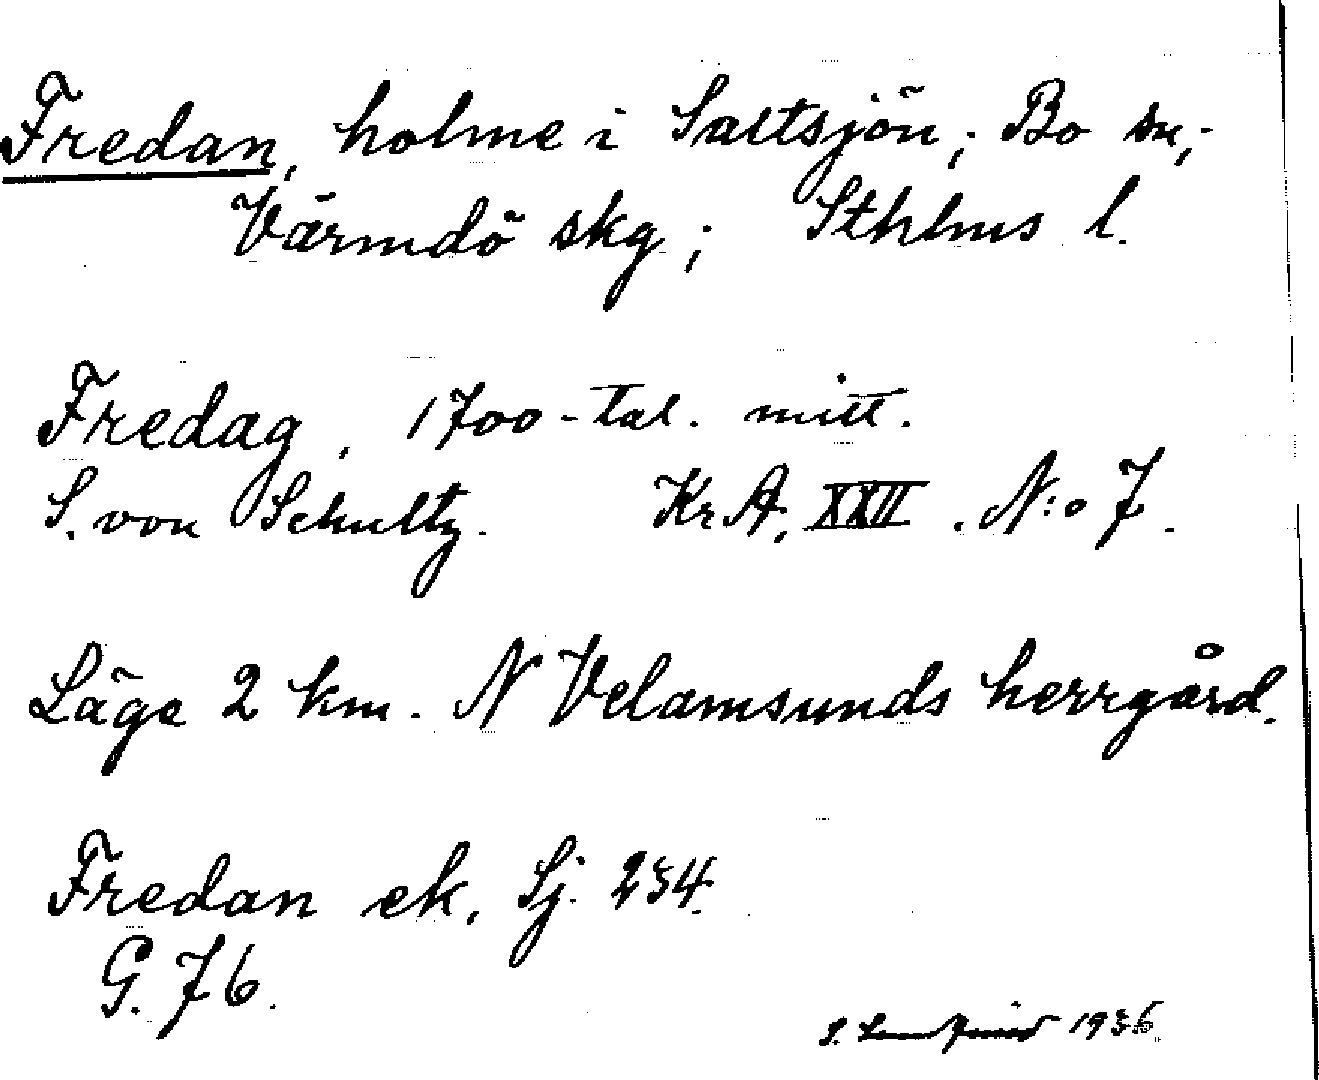 Fredan, holme i Saltsjön; Bo sn;
Värmdö skg; Sthlms l.
Fredag, 1700-tal. mitt.
S. von Schultz. KrA, XXII. N:o 7.
Läge 2 km. N Velamsunds herrgård.
Fredan ek, Sj. 234.
G. 76.
S. 1936